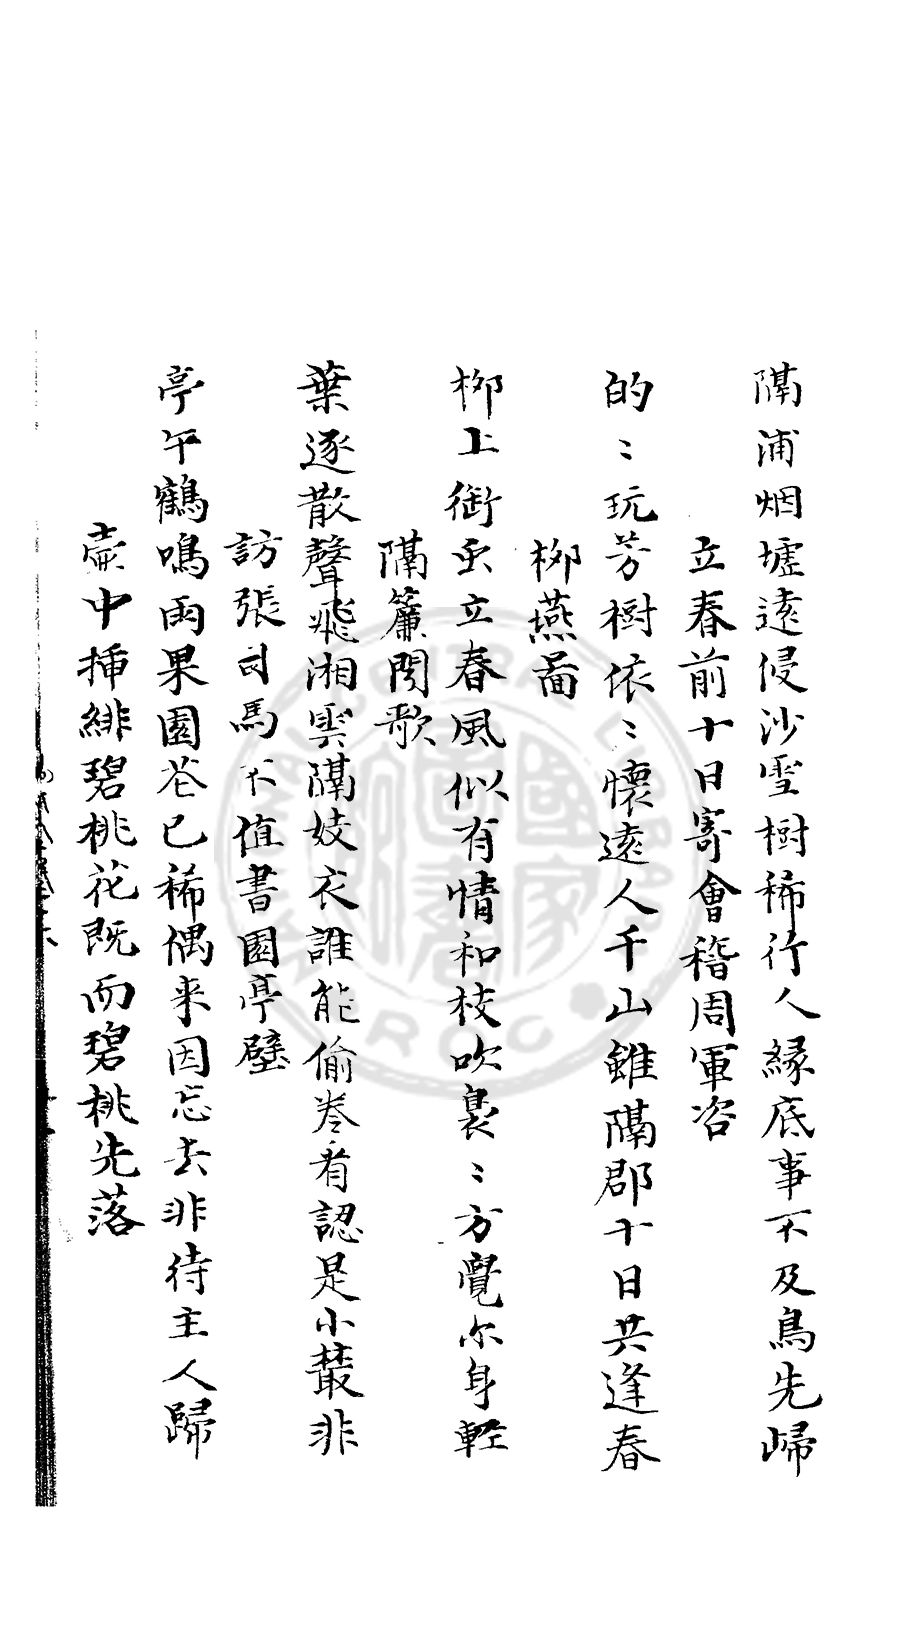 隔浦烟墟遠侵沙雪樹稀行人緣底事不及鳥先歸
立春前十日寄會稽周軍咨
的〻玩芳樹依〻懷遠人千山雖隔郡十日共逢春
柳燕啚
柳上銜虫立春風似有情和枝吹裊〻方覺尔身輕
隔簾聞歌
葉逐散聲飛湘雲隔妓衣誰能偷卷看認是小叢非
訪張司馬不值書園亭壁
亭午鶴鳴雨果園花已稀偶来因忘去非待主人歸
壷中挿緋碧桃花既而碧桃先落